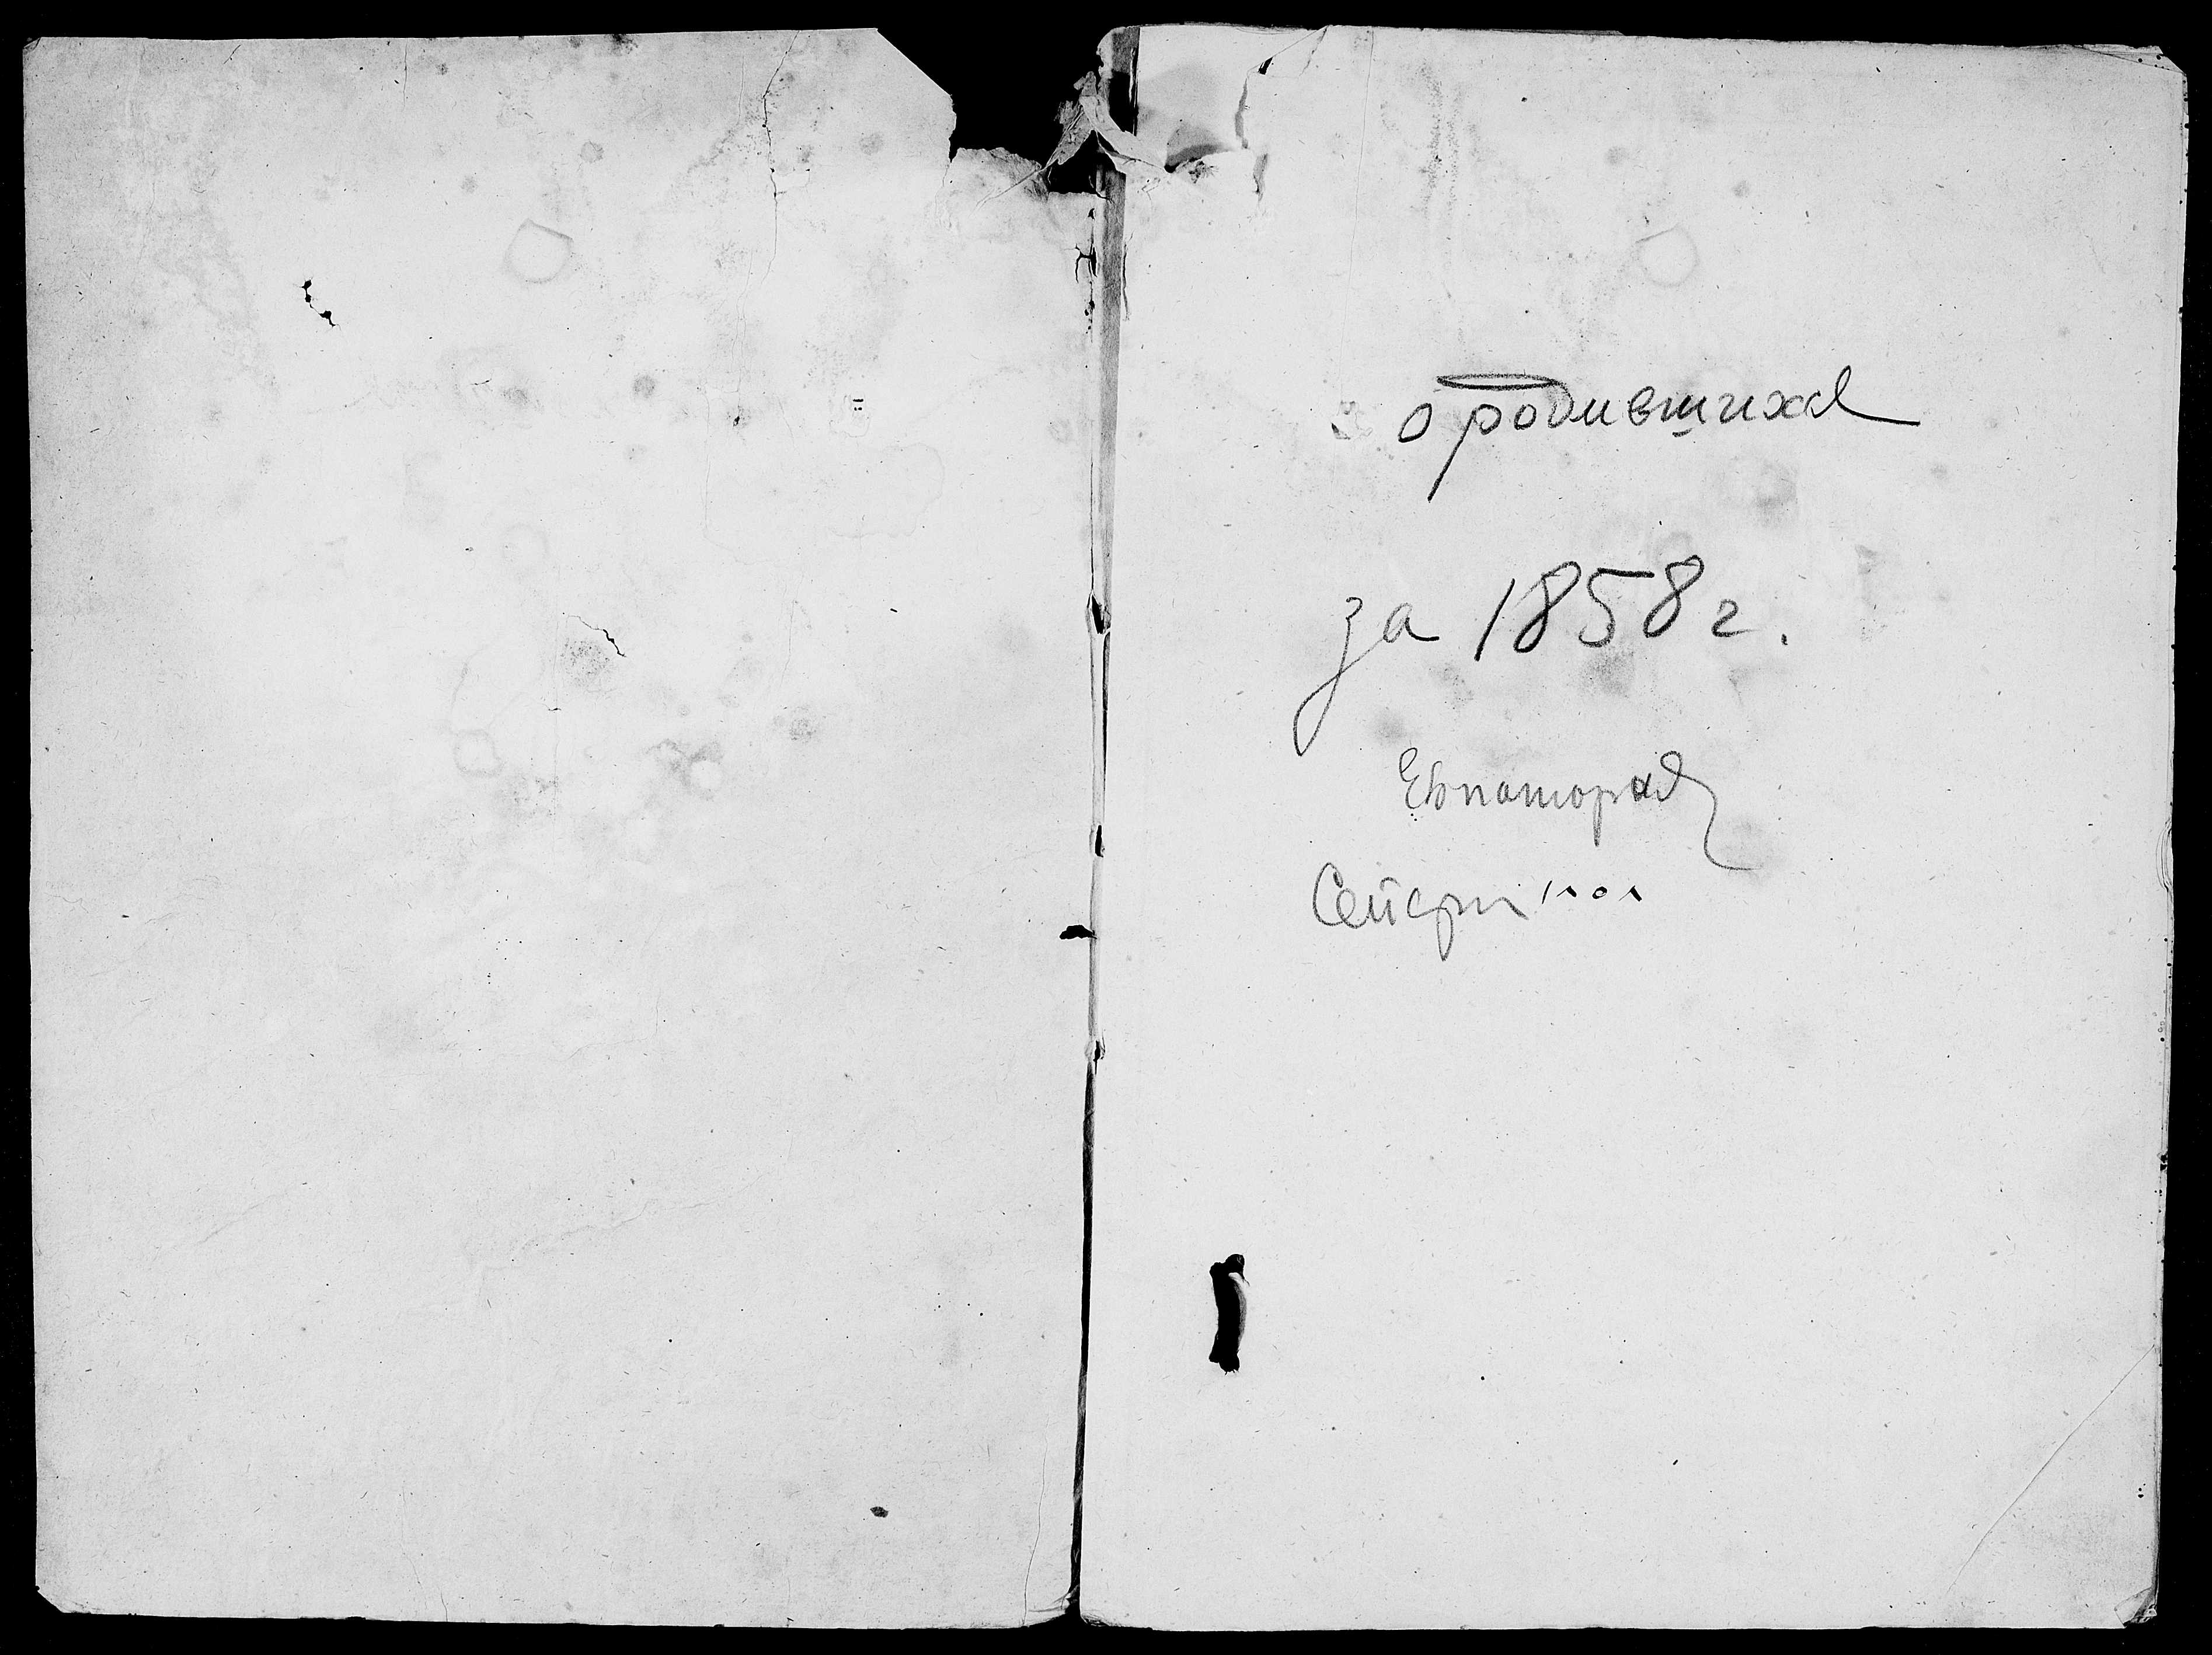 о родившихся
за 1858 г.
Евпатория